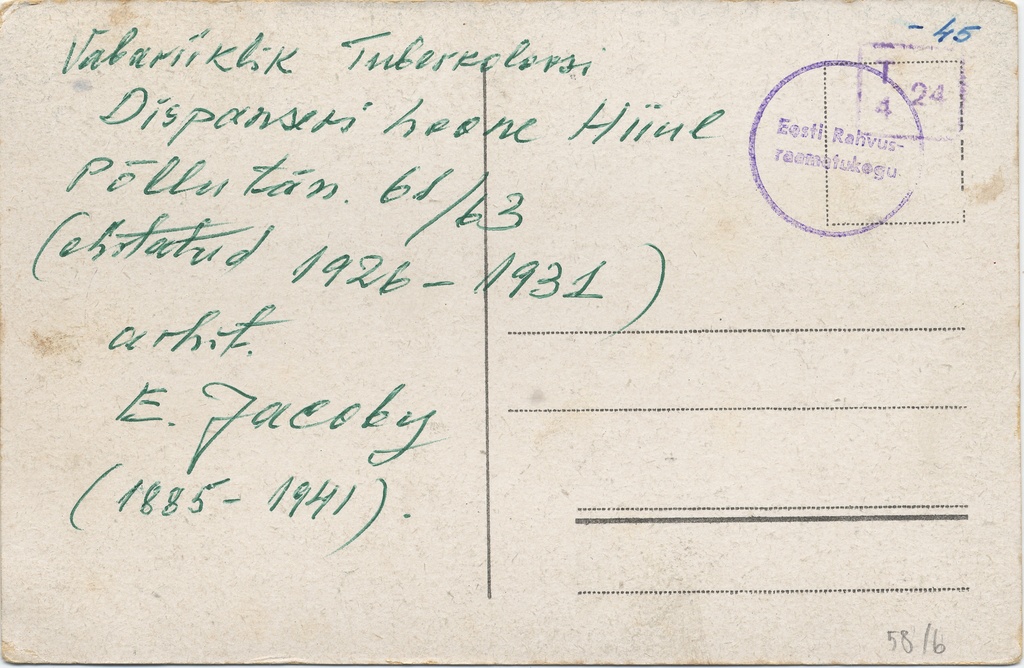 Vabariiklik Tuberkoloosi
Dispanseri hoone Hiiul
Põllu tän. 61/63
(ehitatud 1926 - 1931)
arhit.
E. Jacoby
(1885 - 1941).
- 45
T 24
4
Eesti Rahvus-
raamatukogu
58/6